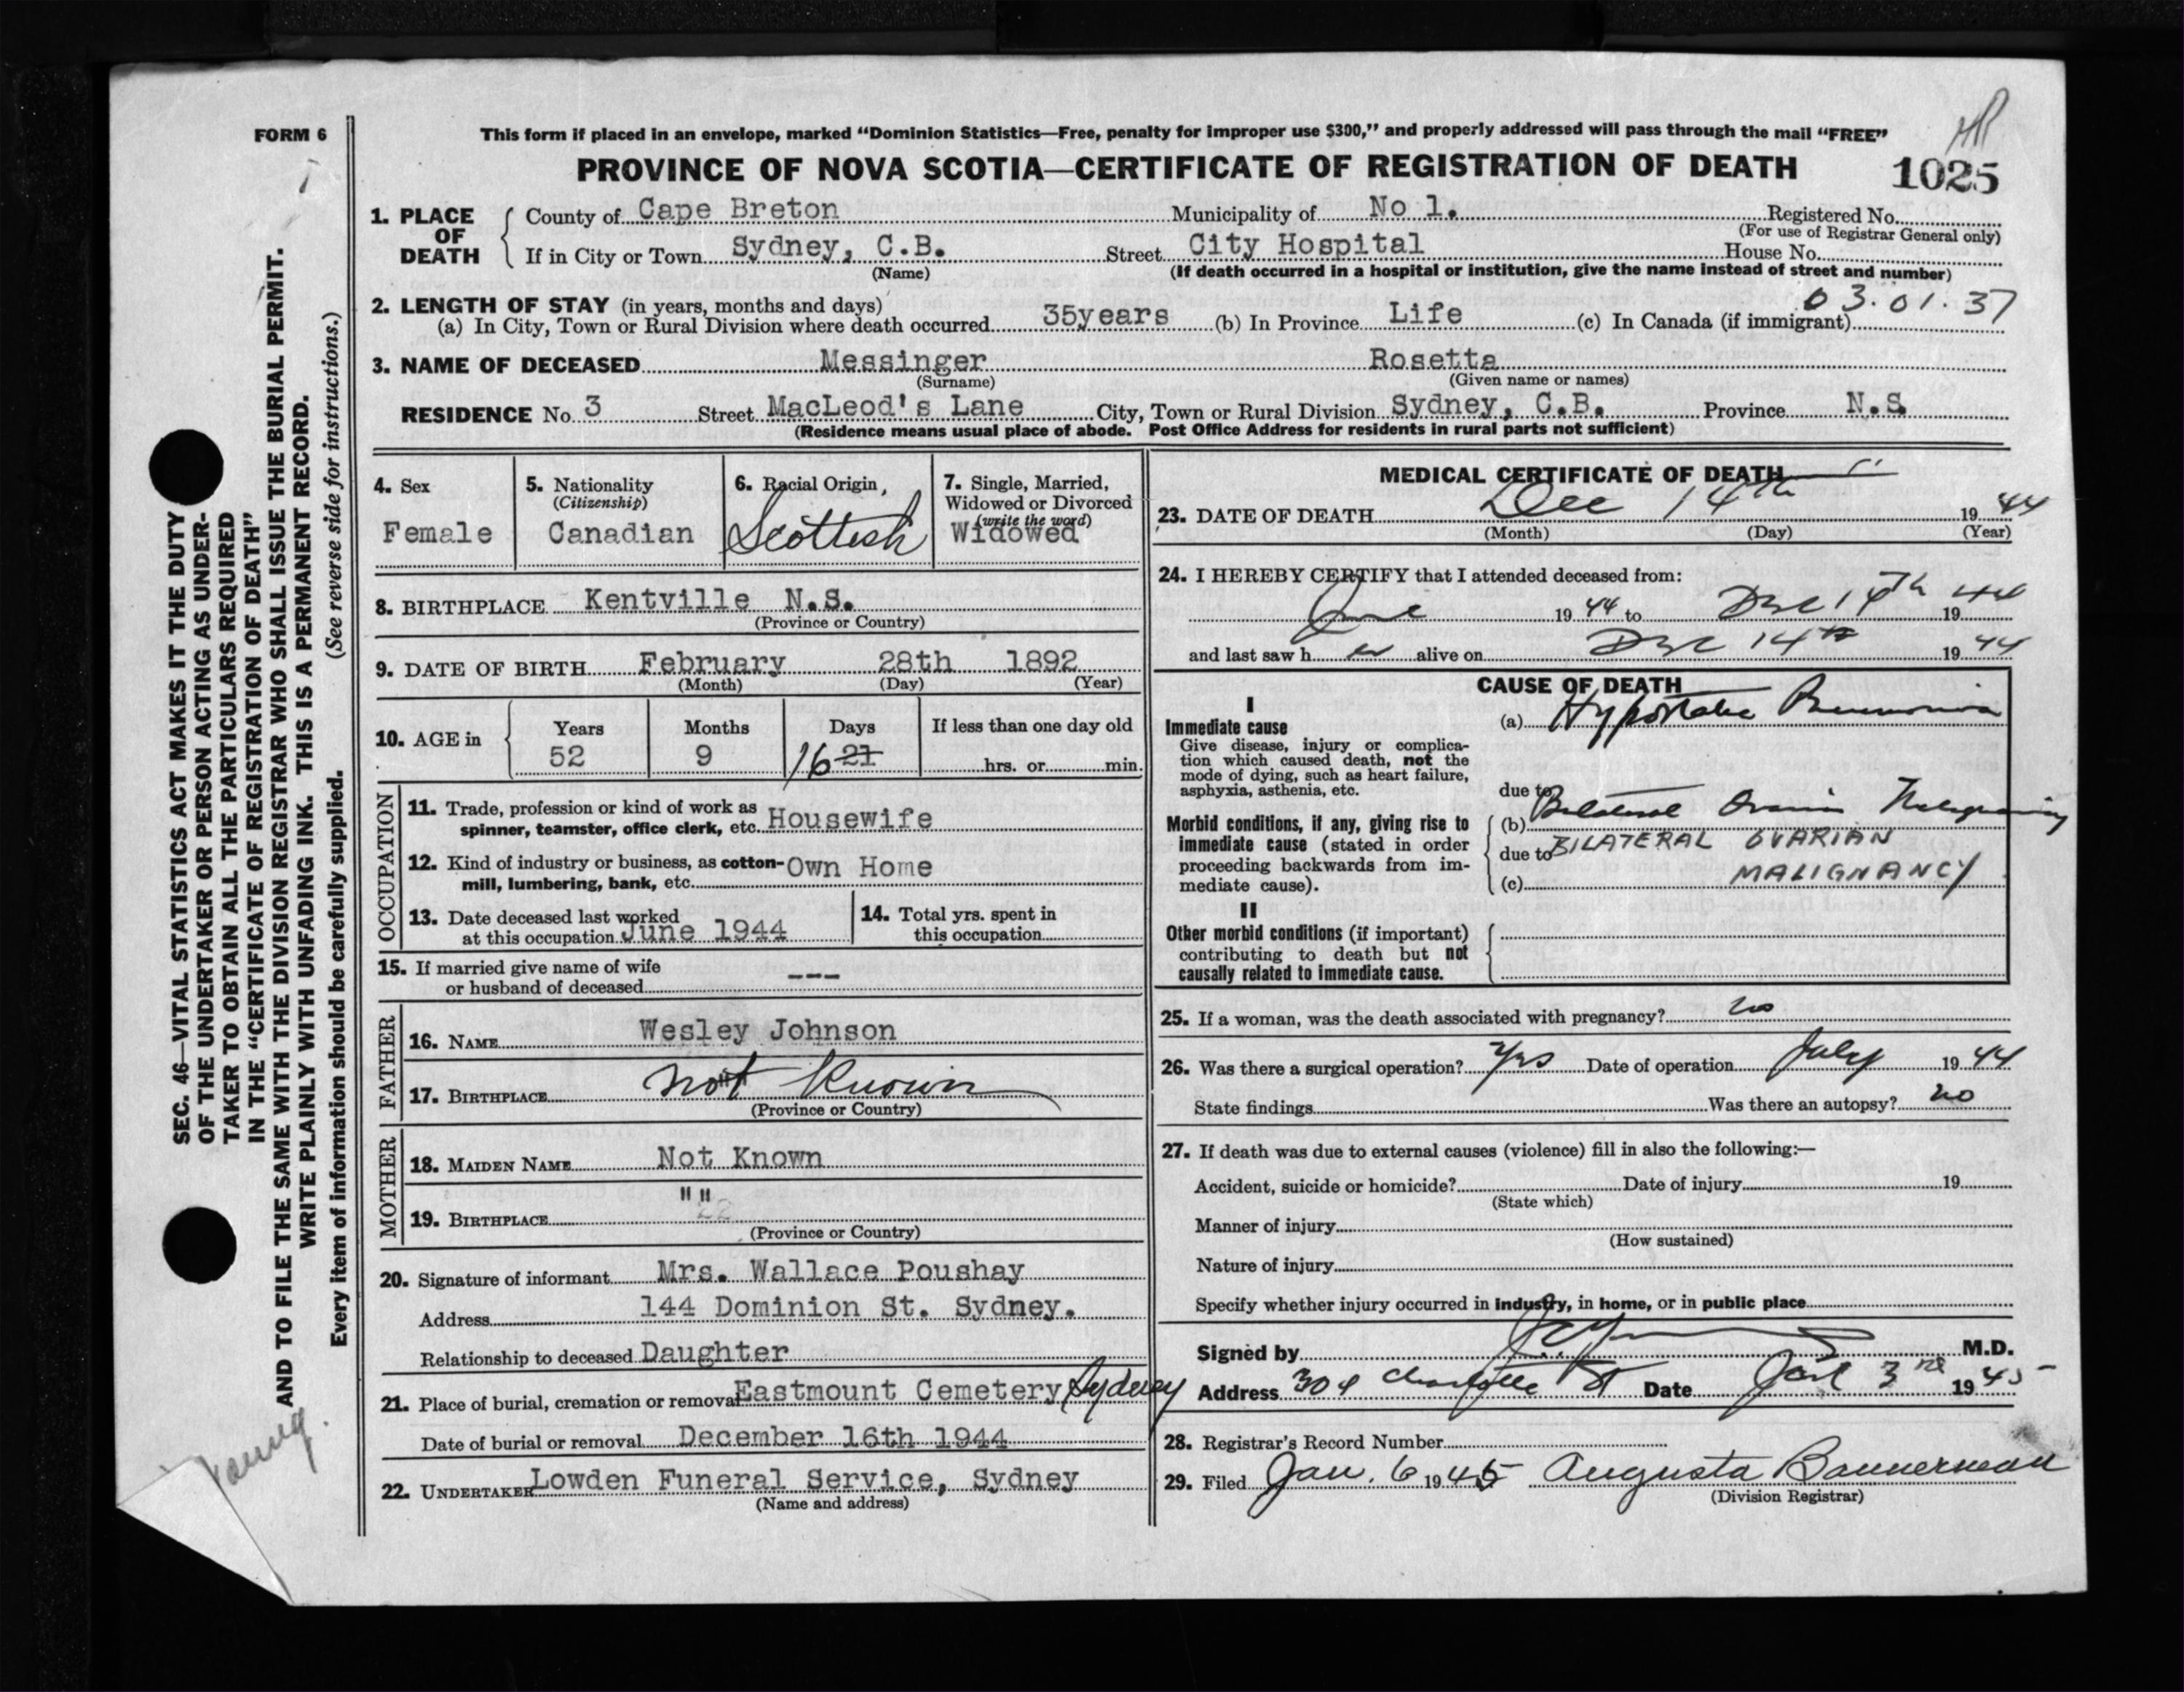 FORM 6
This form if placed in an envelope, marked “Dominion Statistics—Free, penalty for improper use $300,” and properly addressed will pass through the mail “FREE”
PROVINCE OF NOVA SCOTIA—CERTIFICATE OF REGISTRATION OF DEATH
1025
1. PLACE OF DEATH
County of Cape Breton Municipality of No 1. Registered No.
(For use of Registrar General only)
If in City or Town Sydney, C.B. Street City Hospital House No.
(Name) (If death occurred in a hospital or institution, give the name instead of street and number)
2. LENGTH OF STAY (in years, months and days) 03.01.37
(a) In City, Town or Rural Division where death occurred 35years (b) In Province Life (c) In Canada (if immigrant)
3. NAME OF DECEASED Messinger Rosetta
(Surname) (Given name or names)
RESIDENCE No. 3 Street MacLeod's Lane City, Town or Rural Division Sydney, C.B. Province N.S.
(Residence means usual place of abode. Post Office Address for residents in rural parts not sufficient)
4. Sex
Female
5. Nationality
(Citizenship)
Canadian
6. Racial Origin
Scottish
7. Single, Married,
Widowed or Divorced
(write the word)
Widowed
8. BIRTHPLACE Kentville N.S.
(Province or Country)
9. DATE OF BIRTH February 28th 1892
(Month) (Day) (Year)
10. AGE in
Years Months Days If less than one day old
52 9 16 21 hrs. or min.
OCCUPATION
11. Trade, profession or kind of work as
spinner, teamster, office clerk, etc. Housewife
12. Kind of industry or business, as cotton-
mill, lumbering, bank, etc. Own Home
13. Date deceased last worked
at this occupation June 1944
14. Total yrs. spent in
this occupation
15. If married give name of wife
or husband of deceased ---
FATHER
16. NAME Wesley Johnson
17. BIRTHPLACE not Known
(Province or Country)
MOTHER
18. MAIDEN NAME Not Known
19. BIRTHPLACE " "
(Province or Country)
20. Signature of informant Mrs. Wallace Poushay
Address 144 Dominion St. Sydney.
Relationship to deceased Daughter
21. Place of burial, cremation or removal Eastmount Cemetery Sydney
Date of burial or removal December 16th 1944
22. UNDERTAKER Lowden Funeral Service, Sydney
(Name and address)
MEDICAL CERTIFICATE OF DEATH
23. DATE OF DEATH Dec 14th 1944
(Month) (Day) (Year)
24. I HEREBY CERTIFY that I attended deceased from:
June 1944 to Dec 14th 1944
and last saw her alive on Dec 14th 1944
CAUSE OF DEATH
I
Immediate cause
Give disease, injury or complica-
tion which caused death, not the
mode of dying, such as heart failure,
asphyxia, asthenia, etc.
(a) Hypostatic Pneumonia
due to
Morbid conditions, if any, giving rise to
immediate cause (stated in order
proceeding backwards from im-
mediate cause).
(b) Bilateral Ovarian Malignancy
due to BILATERAL OVARIAN
(c) MALIGNANCY
II
Other morbid conditions (if important)
contributing to death but not
causally related to immediate cause.
25. If a woman, was the death associated with pregnancy? no
26. Was there a surgical operation? Yes Date of operation July 1944
State findings Was there an autopsy? no
27. If death was due to external causes (violence) fill in also the following:—
Accident, suicide or homicide? Date of injury 19
(State which)
Manner of injury
(How sustained)
Nature of injury
Specify whether injury occurred in industry, in home, or in public place
Signed by M.D.
Address 304 Charlotte St Date Jan 3rd 1945
28. Registrar's Record Number
29. Filed Jan. 6 1945 Augusta Bannerman
(Division Registrar)
SEC. 46—VITAL STATISTICS ACT MAKES IT THE DUTY
OF THE UNDERTAKER OR PERSON ACTING AS UNDER-
TAKER TO OBTAIN ALL THE PARTICULARS REQUIRED
IN THE “CERTIFICATE OF REGISTRATION OF DEATH”
AND TO FILE THE SAME WITH THE DIVISION REGISTRAR WHO SHALL ISSUE THE BURIAL PERMIT.
WRITE PLAINLY WITH UNFADING INK. THIS IS A PERMANENT RECORD.
Every item of information should be carefully supplied. (See reverse side for instructions.)
Young.